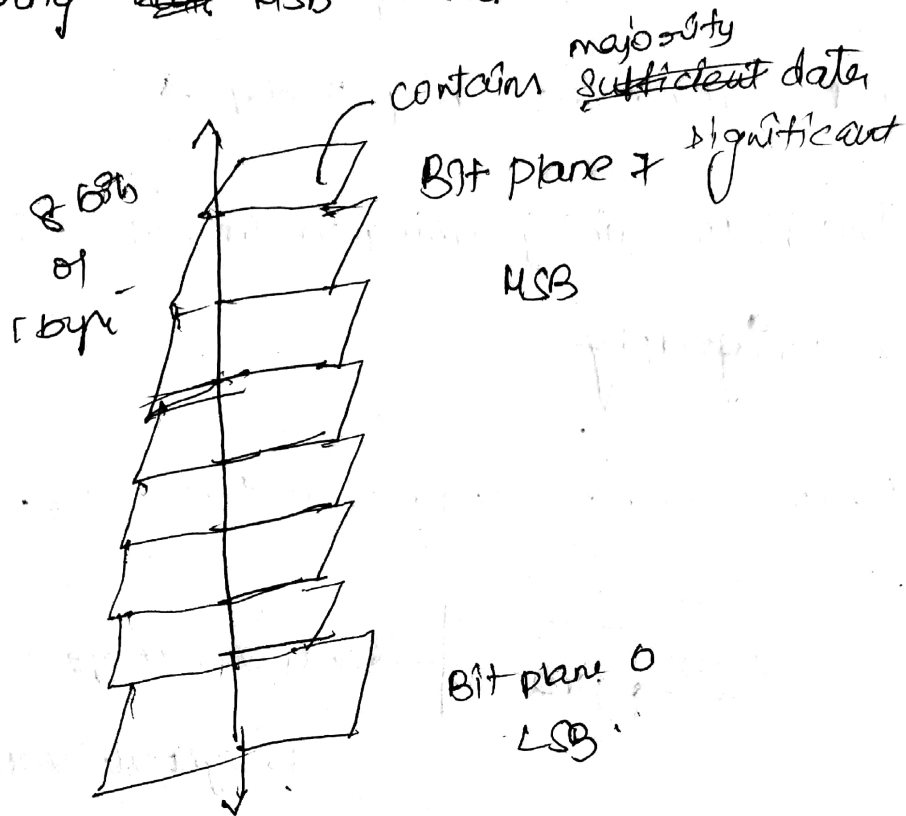 MSB
majority
contains sufficient data
significant
Bit plane 7
8 bits
of
1 byte
MSB
Bit plane 0
LSB.